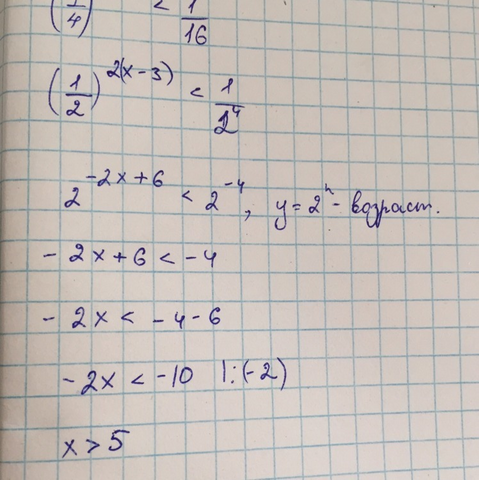 (1/4) < 1/16
(1/2)^2(x-3) < 1/2^4
2^-2x+6 < 2^-4, y=2^x - возраст.
- 2x+6 < -4
- 2x < -4-6
-2x < -10 |:(-2)
x > 5